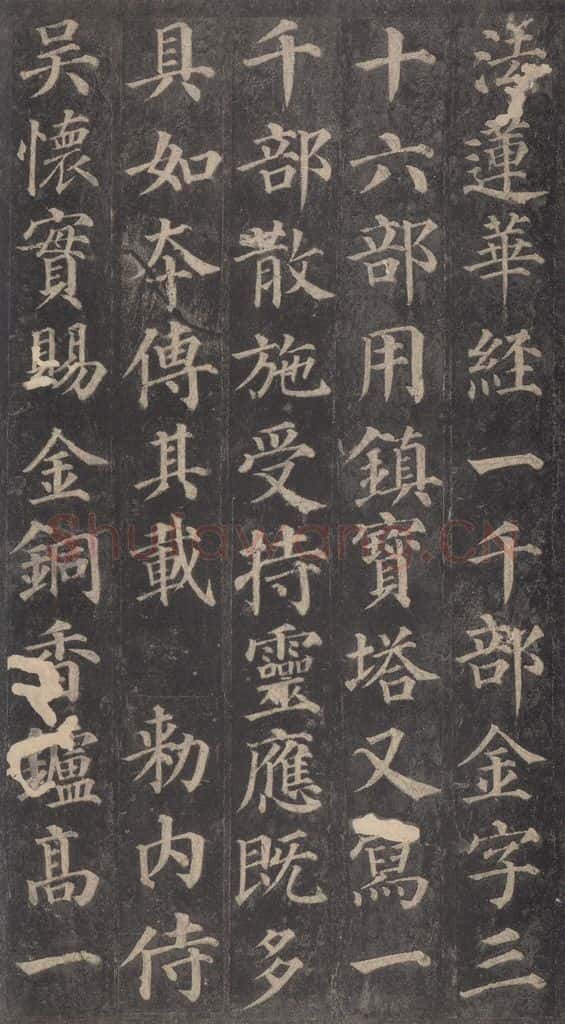 法蓮華経一千部金字三
十六部用鎮寶塔又寫一
千部散施受持靈應既多
具如本傳其載 勑内侍
吳懷實賜金銅香鑪髙一
Shufawang.CN